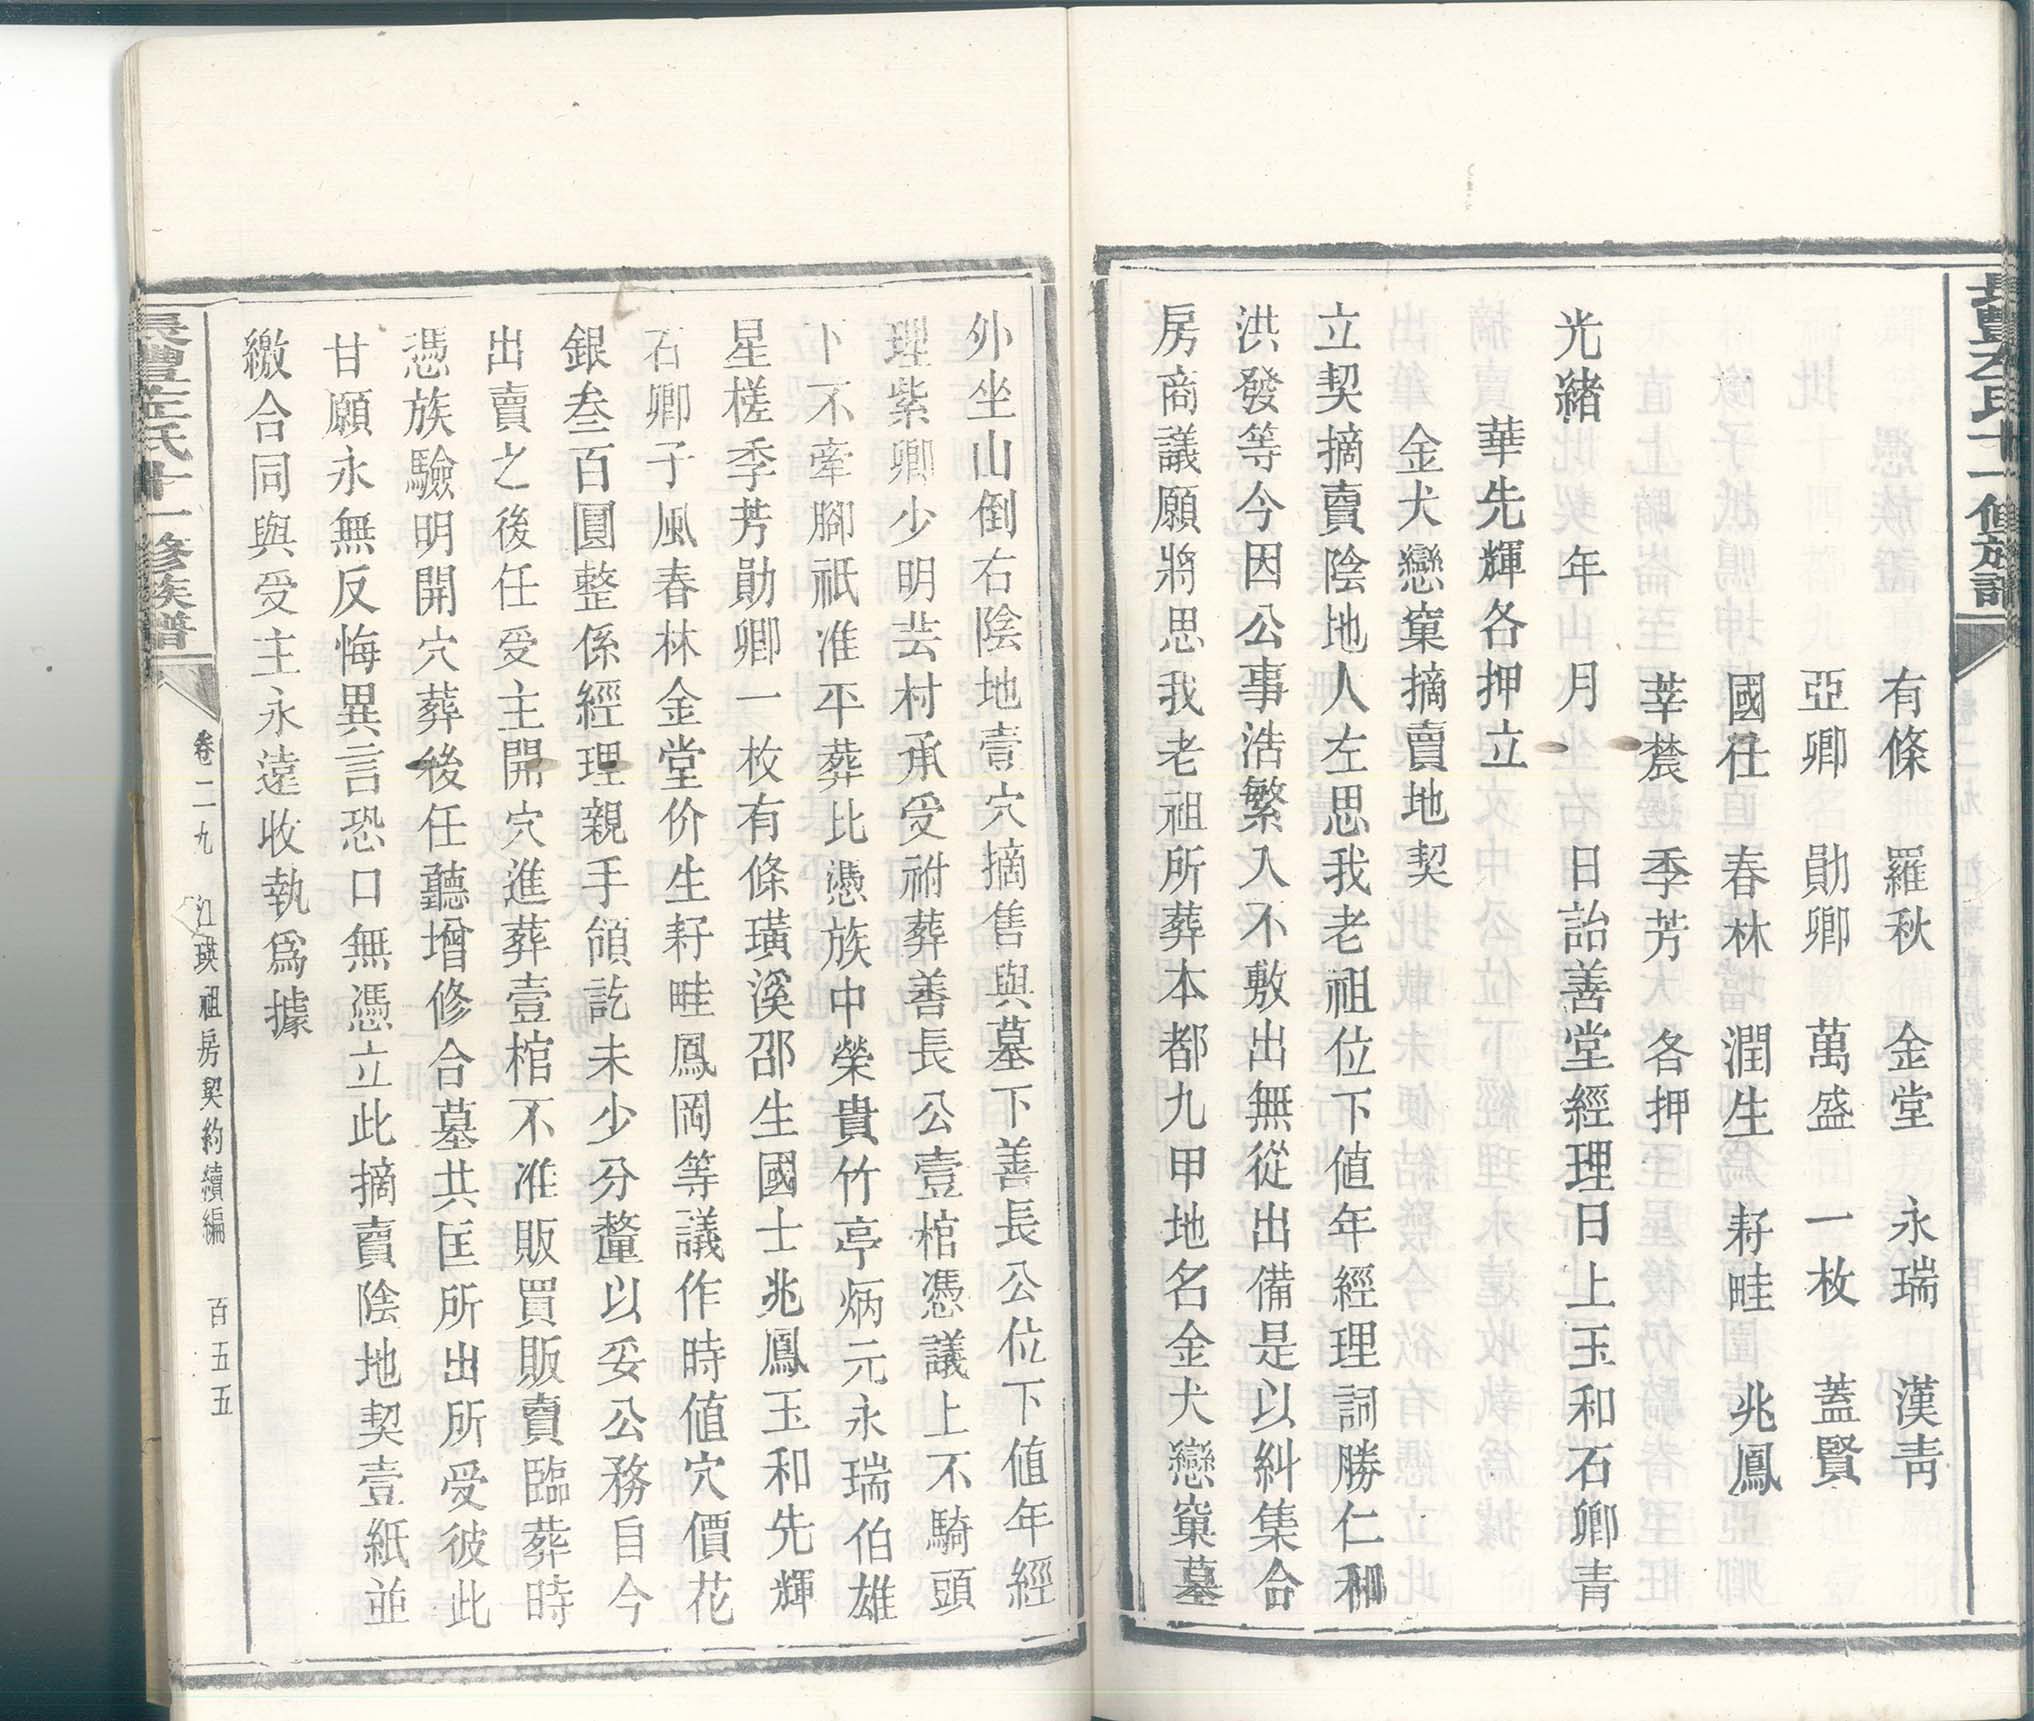 長豐左氏十一修族譜
有條 羅秋 金堂 永瑞 漢青
亞卿 勛卿 萬盛 一枚 蓋賢
國仕 春林 潤生 耔畦 兆鳳
莘農 季芳 各押
光緒 年 月 日詒善堂經理日上玉和石卿青
華先輝各押立
金犬戀窠摘賣地契
立契摘賣陰地人左思我老祖位下值年經理詞勝仁和
洪發等今因公事浩繁入不敷出無從出備是以糾集合
房商議願將思我老祖所葬本都九甲地名金犬戀窠墓
外坐山倒右陰地壹穴摘售與墓下善長公位下值年經
理紫卿少明芸村承受祔葬善長公壹棺憑議上不騎頭
卜不牽腳祇准平葬比憑族中榮貴竹亭炳元永瑞伯雄
星槎季芳勛卿一枚有條璜溪邵生國士兆鳳玉和先輝
石卿子風春林金堂价生耔畦鳳岡等議作時值穴價花
銀叁百圓整係經理親手領訖未少分釐以妥公務自今
出賣之後任受主開穴進葬壹棺不准販買販賣臨葬時
憑族驗明開穴葬後任聽增修合墓共匡所出所受彼此
甘願永無反悔異言恐口無憑立此摘賣陰地契壹紙並
繳合同與受主永遠收執爲據
長豐左氏十一修族譜
卷二九 江瑛祖房契約續編 百五五